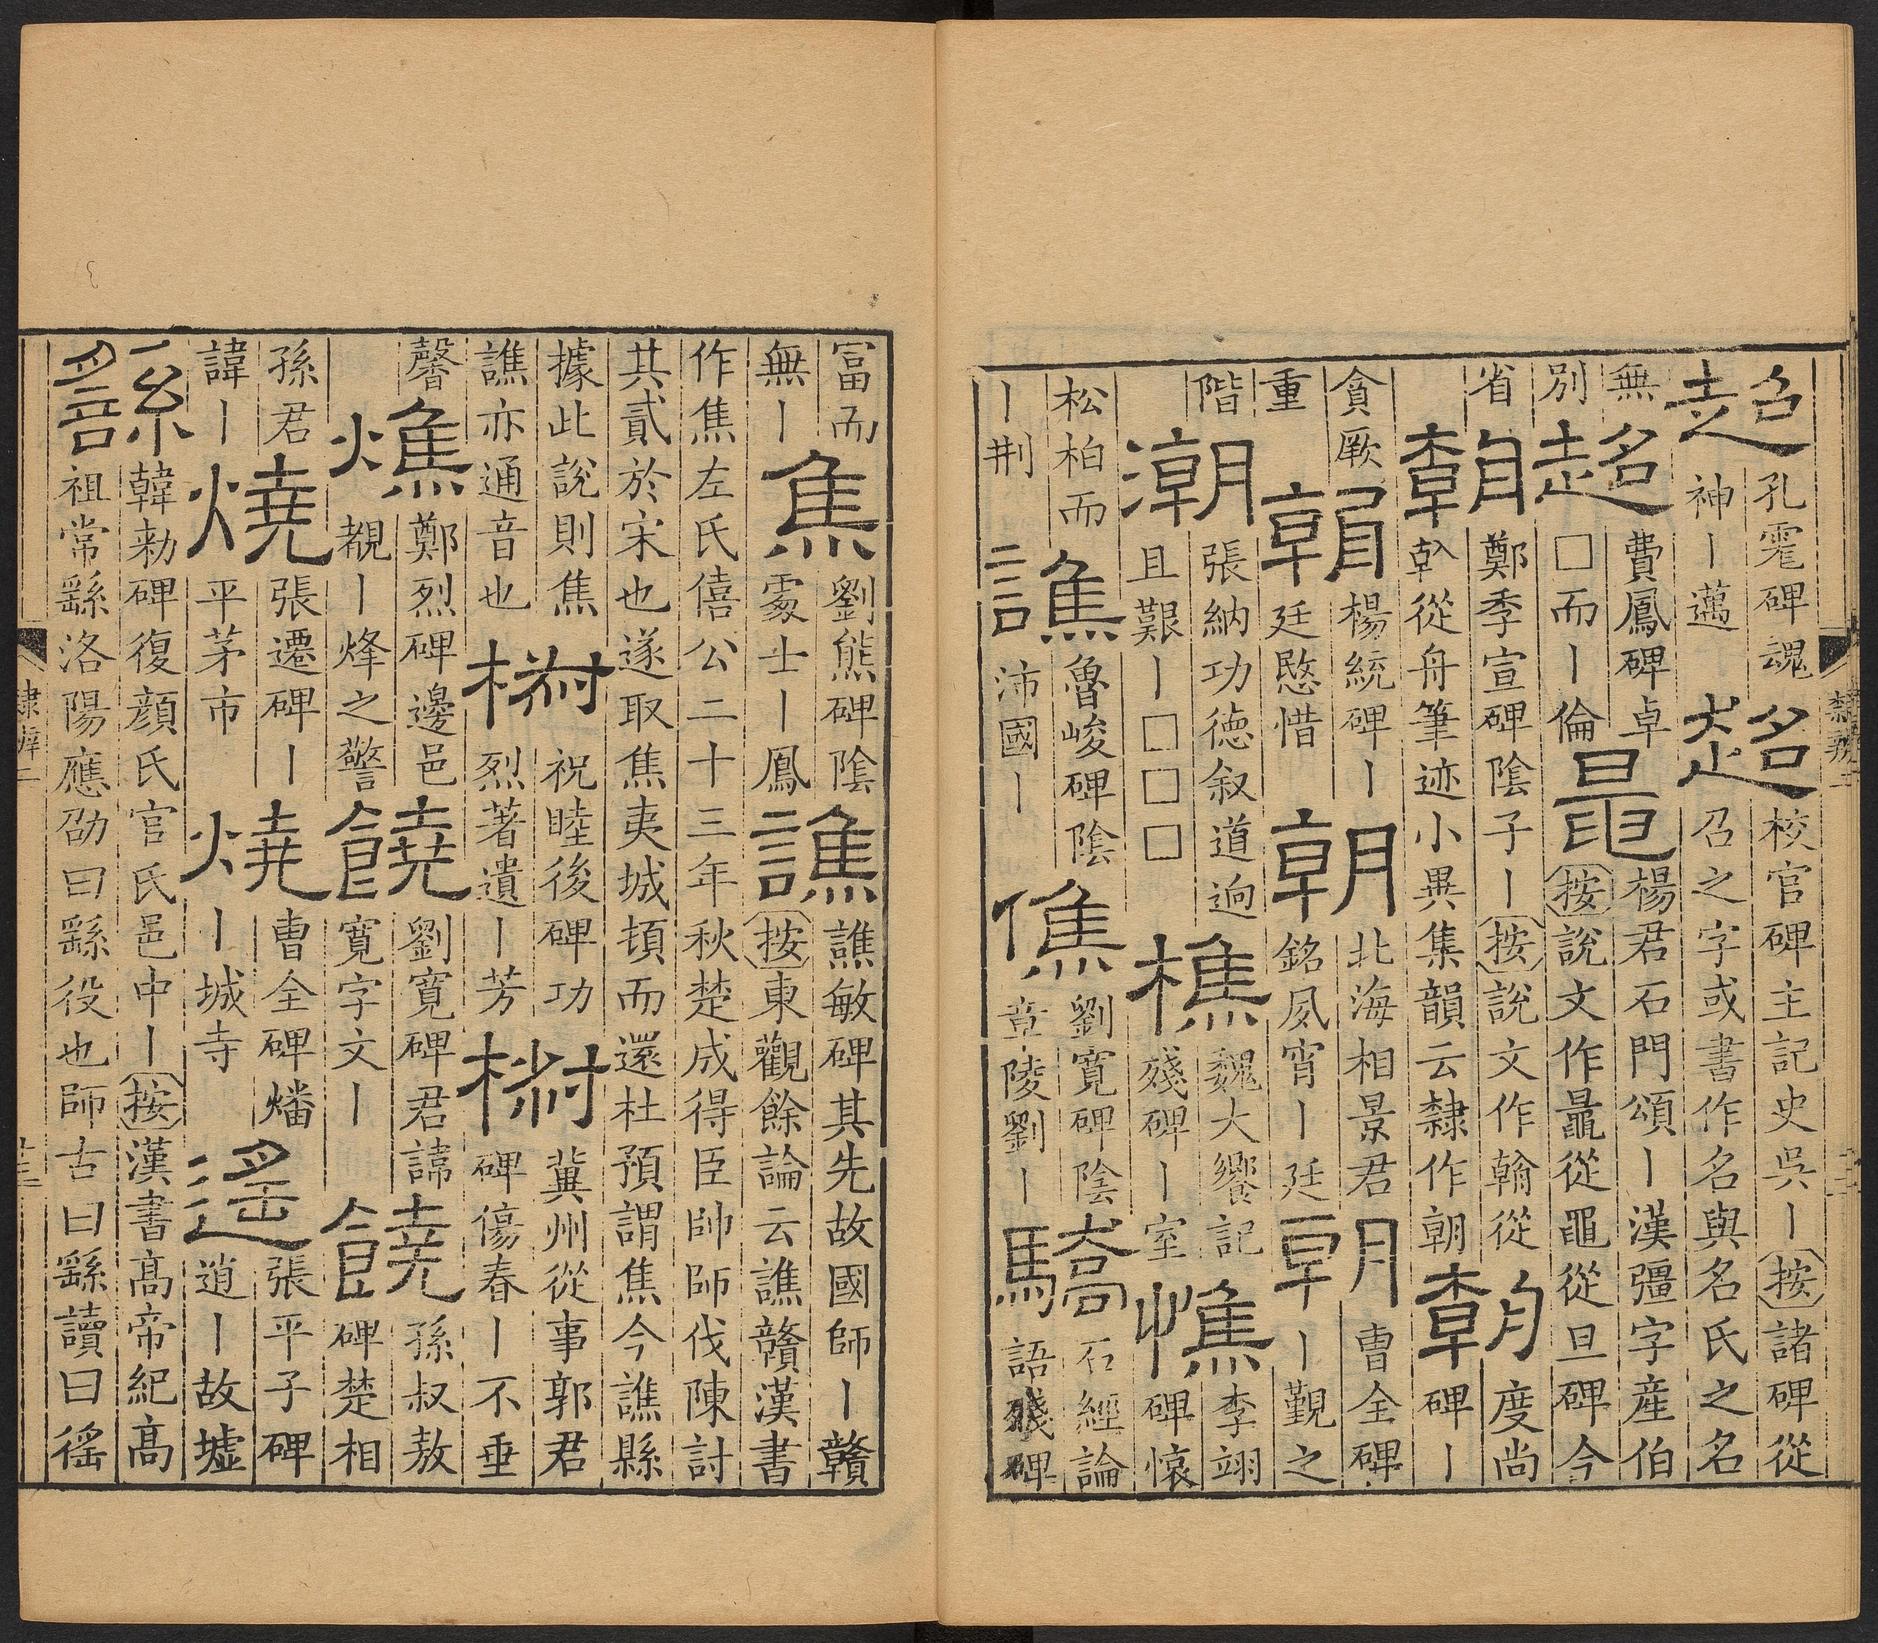 超孔霍碑魂神丨邁超校官碑主記史吳丨按諸碑從召之字或書作名與名氏之名
無別超費鳳碑卓□而丨倫鼂楊君石門頌丨漢彊字産伯按說文作鼂從黽從旦碑今
省朝鄭季宣碑陰子丨按說文作翰從倝從舟筆迹小異集韻云隸作朝朝度尚碑丨
貪厥重朝楊統碑丨廷愍惜朝北海相景君銘夙宵丨廷朝曹全碑丨覲之
階潮張納功德叙道逈且艱丨□□□樵魏大饗記殘碑丨室憔李翊碑懷
松柏而丨荆譙魯峻碑陰沛國丨僬劉寬碑陰章陵劉丨驕石經論語殘碑
富而無丨焦劉熊碑陰處士丨鳳譙譙敏碑其先故國師丨贛按東觀餘論云譙贛漢書
作焦左氏僖公二十三年秋楚成得臣帥師伐陳討其貳於宋也遂取焦夷城頓而還杜預謂焦今譙縣
據此說則焦譙亦通音也椒祝睦後碑功烈著遺丨芳椒冀州從事郭君碑傷春丨不垂
馨燋鄭烈碑邊邑覩丨烽之警饒劉寬碑君諱寬字文丨饒孫叔敖碑楚相
孫君諱丨燒張遷碑丨平茅市燒曹全碑燔丨城寺遙張平子碑逍丨故墟
繇韓勑碑復顔氏官氏邑中丨按漢書高帝紀高祖常繇洛陽應劭曰繇役也師古曰繇讀曰徭
隸辨二